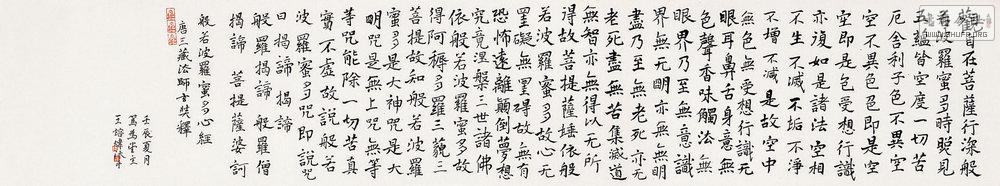 觀自在菩薩行深般
若波羅蜜多時照見
五蘊皆空度一切苦
厄舍利子色不異空
空不異色色即是空
空即是色受想行識
亦復如是諸法空相
不生不滅不垢不淨
不增不減是故空中
無色無受想行識无
眼耳鼻舌身意無
色聲香味觸法無
眼界乃至無意識
界無无明亦無無明
盡乃至無老死亦无
老死盡無苦集滅道
無智亦無得以无所
得故菩提薩埵依般
若波羅蜜多故心无
罣礙無罣礙故無有
恐怖遠離顛倒夢想
究竟涅槃三世諸佛
依般若波羅蜜多故
得阿耨多羅三藐三
菩提故知般若波羅
蜜多是大神咒是大
明咒是無上咒是無等
等咒能除一切苦真
實不虛故說般若波
羅蜜多咒即說咒
曰揭諦揭諦
般羅揭諦般羅僧
揭諦菩提薩婆訶
般若波羅蜜多心經
唐三藏法師玄奘釋
壬辰夏月